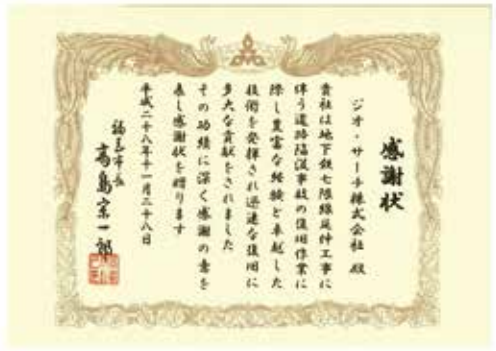 感謝状
ジオ・サーチ株式会社 殿
貴社は地下鉄七隈線延伸工事に
伴う道路陥没事故の復旧作業に
際し豊富な経験と卓越した
技術を発揮され迅速な復旧に
多大な貢献をされました
その功績に深く感謝の意を
表し感謝状を贈ります
平成二十八年十一月二十八日
福岡市長
高島宗一郎